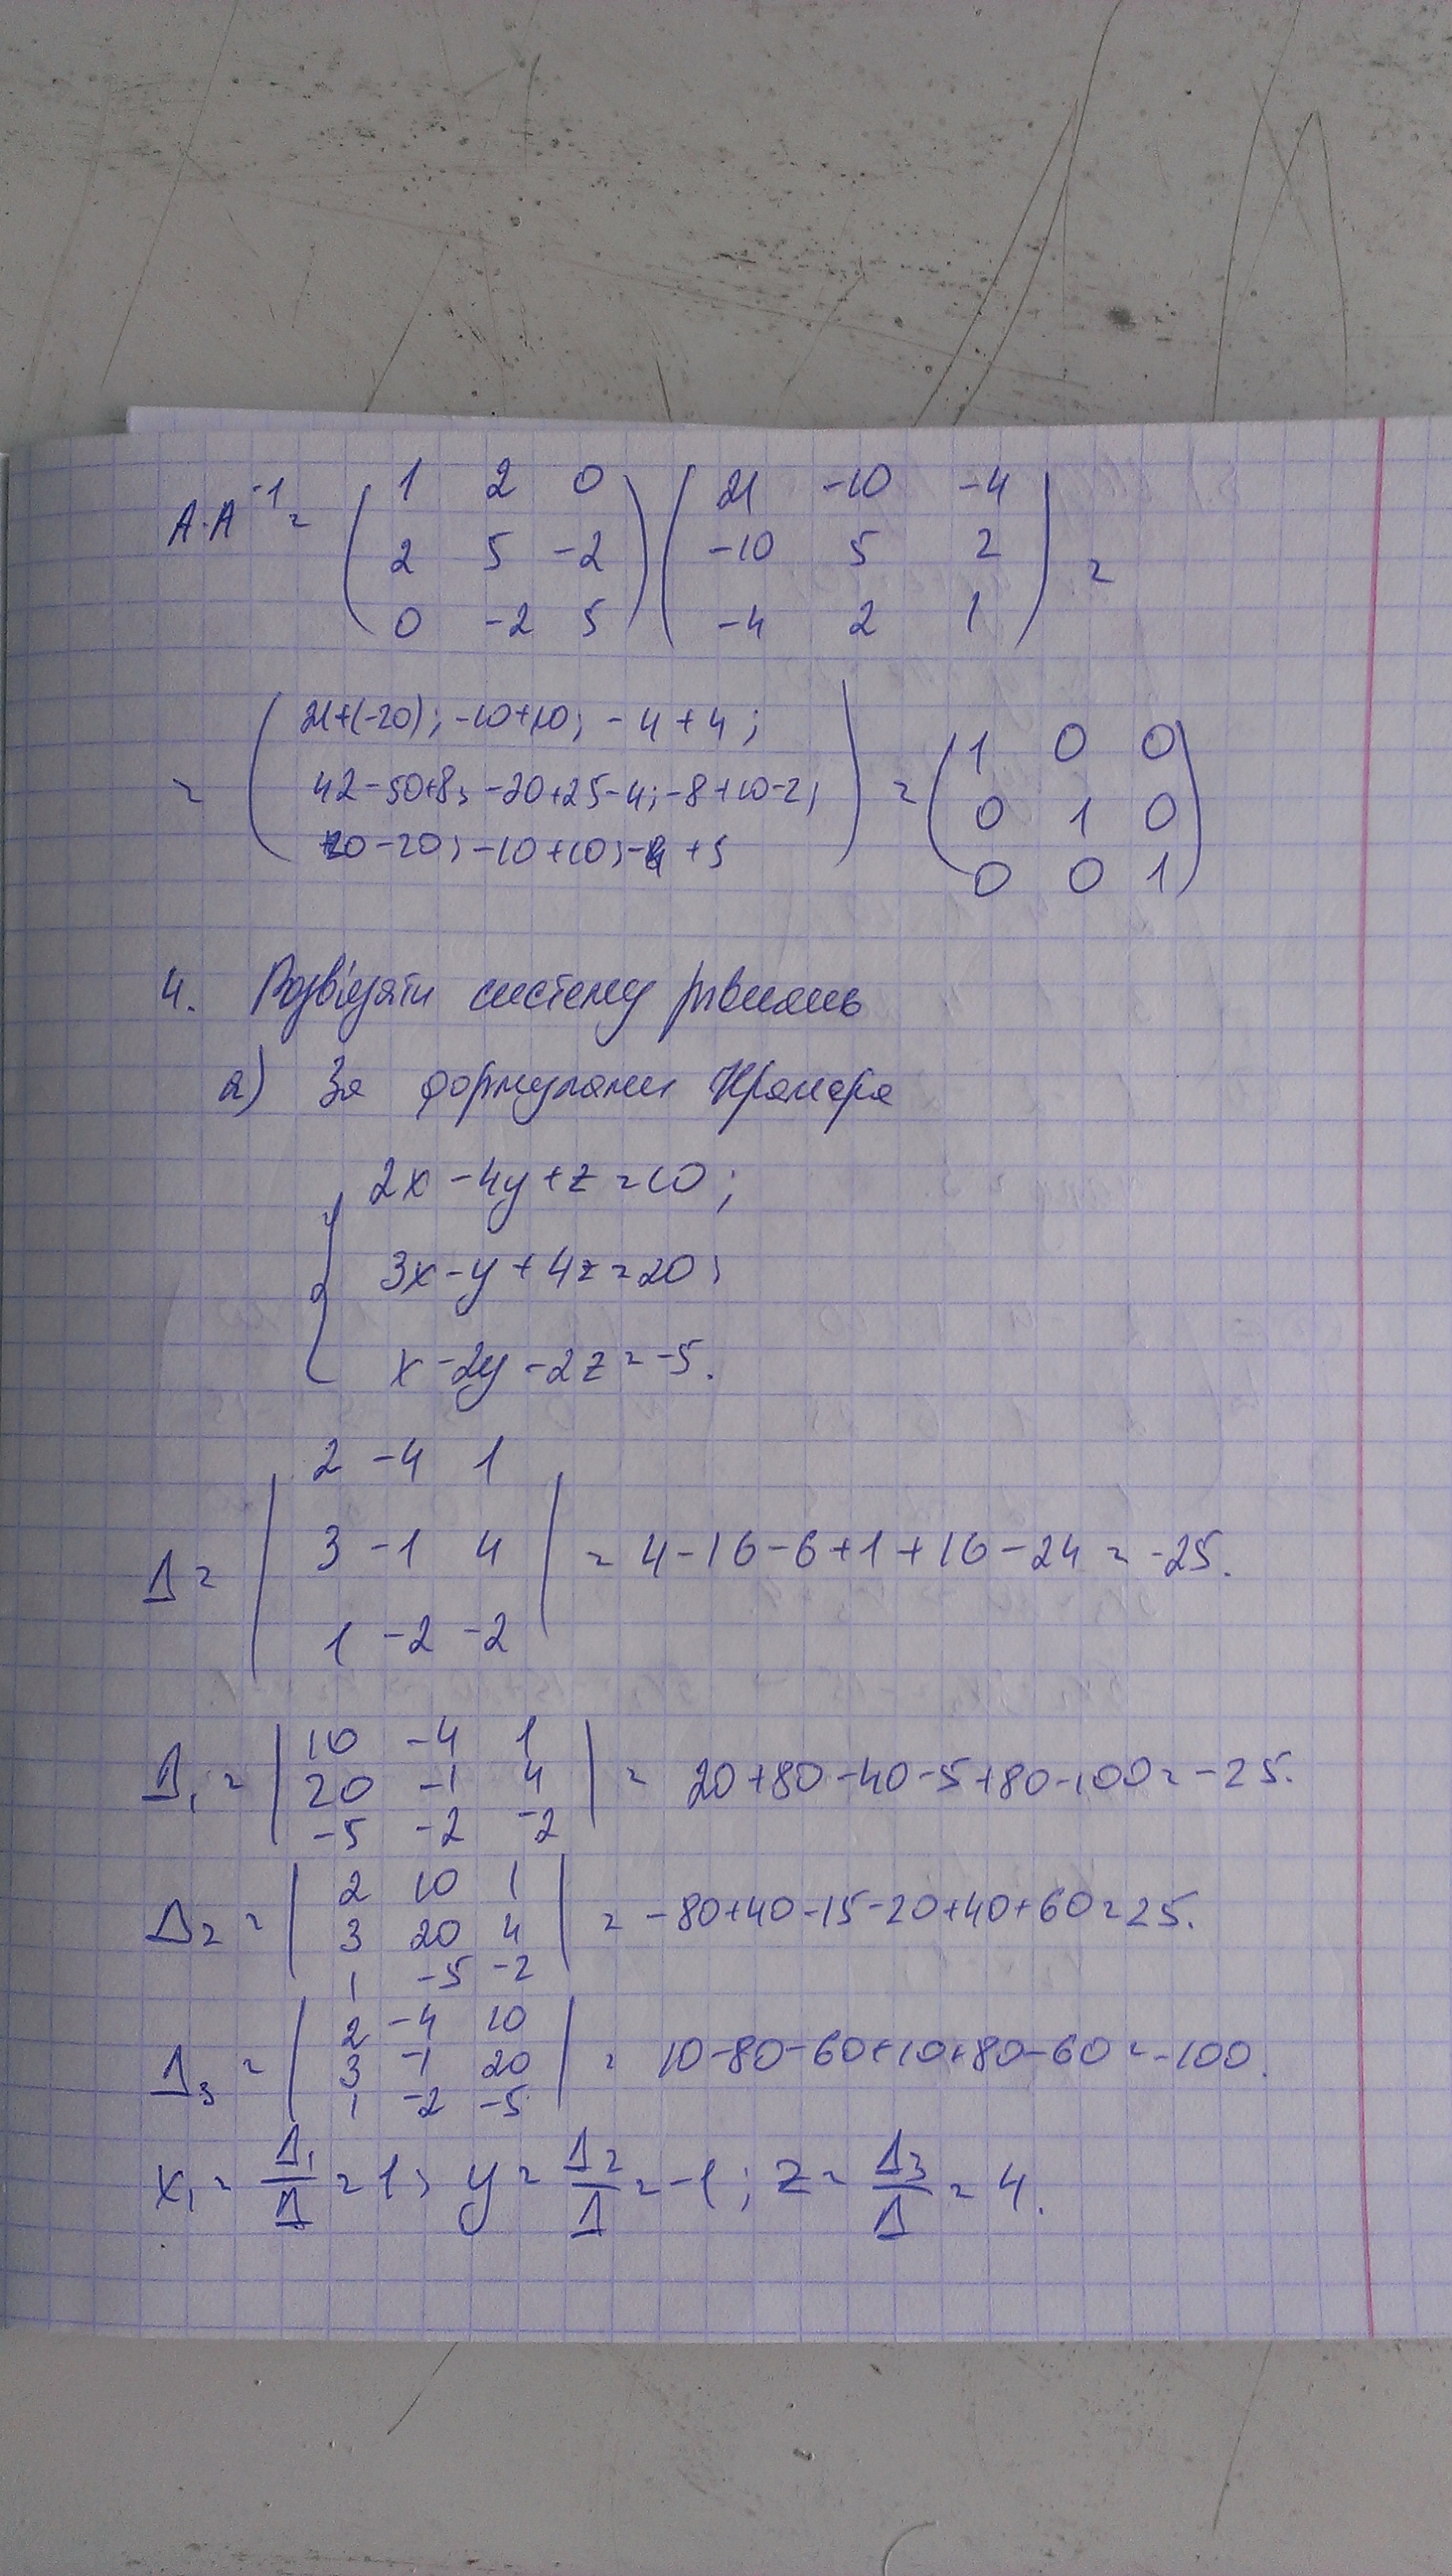 A·A⁻¹ = ( 1 2 0 ) ( 21 -10 -4 )
( 2 5 -2 ) ( -10 5 2 ) =
( 0 -2 5 ) ( -4 2 1 )
= ( 21+(-20); -10+10; -4+4; ) = ( 1 0 0 )
( 42-50+8; -20+25-4; -8+10-2; ) ( 0 1 0 )
( 20-20; -10+10; -4+5 ) ( 0 0 1 )
4. Розв'язати систему рівнянь
а) За формулами Крамера
{ 2x-4y+z=10;
3x-y+4z=20;
x-2y-2z=-5.
Δ= | 2 -4 1 |
| 3 -1 4 | = 4-16-6+1+16-24=-25.
| 1 -2 -2 |
Δ₁= | 10 -4 1 |
| 20 -1 4 | = 20+80-40-5+80-100=-25.
| -5 -2 -2 |
Δ₂= | 2 10 1 |
| 3 20 4 | = -80+40-15-20+40+60=25.
| 1 -5 -2 |
Δ₃= | 2 -4 10 |
| 3 -1 20 | = 10-80-60+10+80-60=-100.
| 1 -2 -5 |
x₁= Δ₁/Δ =1; y= Δ₂/Δ =-1; z= Δ₃/Δ = 4.